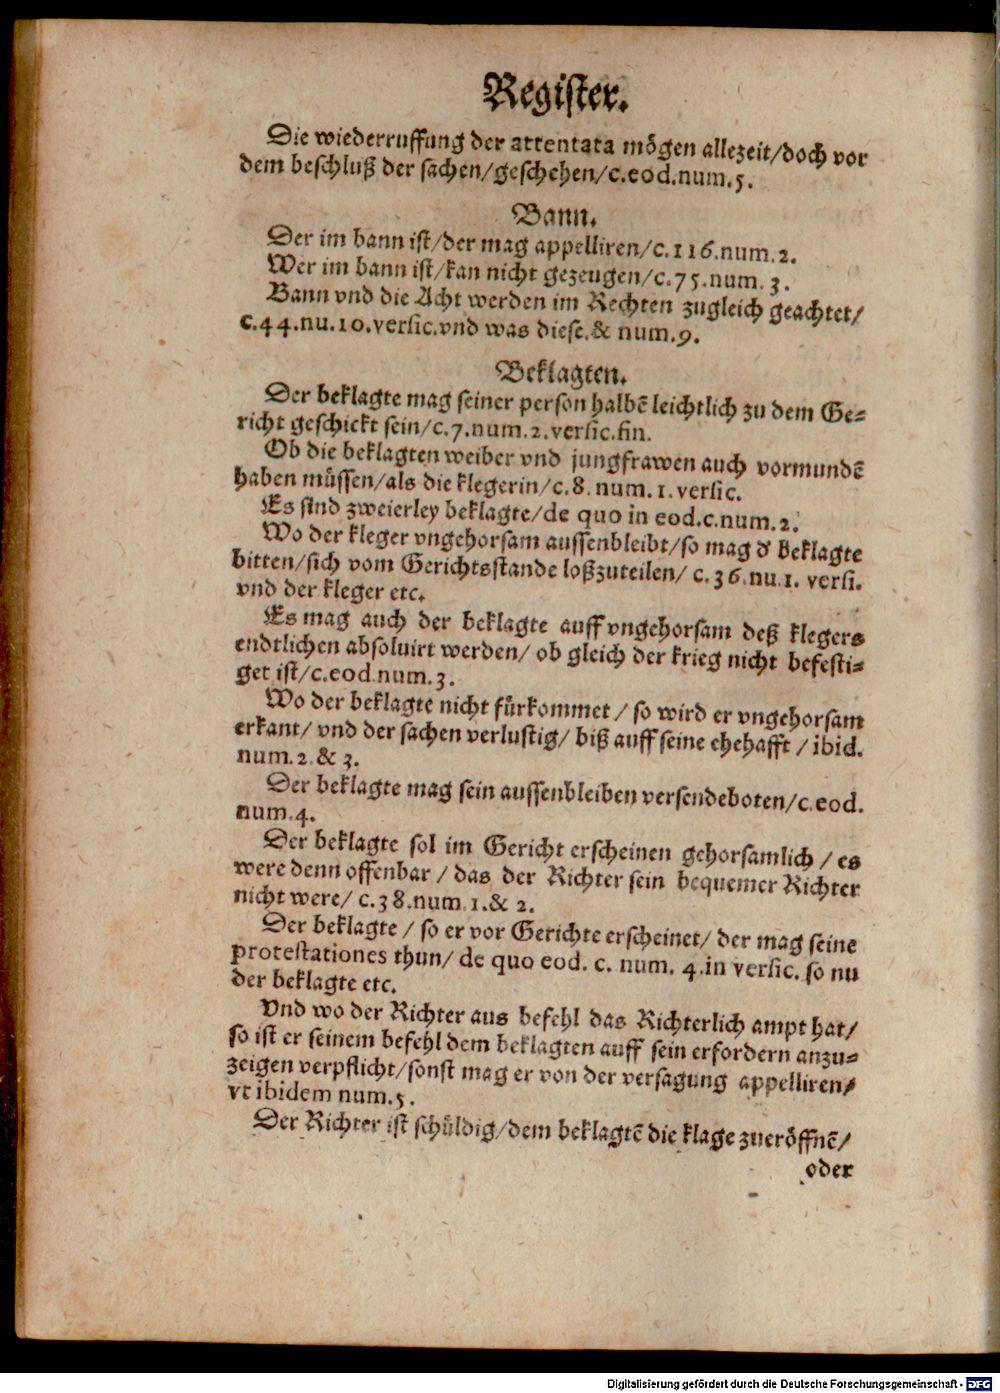 Register.
Die wiederruffung der attentata mögen allezeit/doch vor
dem beschluß der sachen/geschehen/c.eod.num.5.
Bann.
Der im bann ist/der mag appelliren/c.116.num.2.
Wer im bann ist/kan nicht gezeugen/c.75.num.3.
Bann vnd die Acht werden im Rechten zugleich geachtet/
c.44.nu.10.versic.vnd was diese.& num.9.
Beklagten.
Der beklagte mag seiner person halbẽ leichtlich zu dem Ge-
richt geschickt sein/c.7.num.2.versic.fin.
Ob die beklagten weiber vnd jungfrawen auch vormundẽ
haben müssen/als die klegerin/c.8.num.1.versic.
Es sind zweierley beklagte/de quo in eod.c.num.2.
Wo der kleger vngehorsam aussenbleibt/so mag d' beklagte
bitten/sich vom Gerichtsstande loßzuteilen/ c.36.nu.1. versi.
vnd der kleger etc.
Es mag auch der beklagte auff vngehorsam deß klegers
endtlichen absoluirt werden/ ob gleich der krieg nicht befesti-
get ist/c.eod.num.3.
Wo der beklagte nicht fürkommet / so wird er vngehorsam
erkant/ vnd der sachen verlustig/ biß auff seine ehehafft / ibid.
num.2.& 3.
Der beklagte mag sein aussenbleiben versendeboten/c.eod.
num.4.
Der beklagte sol im Gericht erscheinen gehorsamlich / es
were denn offenbar / das der Richter sein bequemer Richter
nicht were/ c.38.num.1.& 2.
Der beklagte / so er vor Gerichte erscheinet/ der mag seine
protestationes thun/ de quo eod. c. num. 4.in versic. so nu
der beklagte etc.
Vnd wo der Richter aus befehl das Richterlich ampt hat/
so ist er seinem befehl dem beklagten auff sein erfordern anzu-
zeigen verpflicht/sonst mag er von der versagung appelliren/
vt ibidem num.5.
Der Richter ist schüldig/dem beklagtẽ die klage zueröffnẽ/
oder
Digitalisierung gefördert durch die Deutsche Forschungsgemeinschaft - DFG